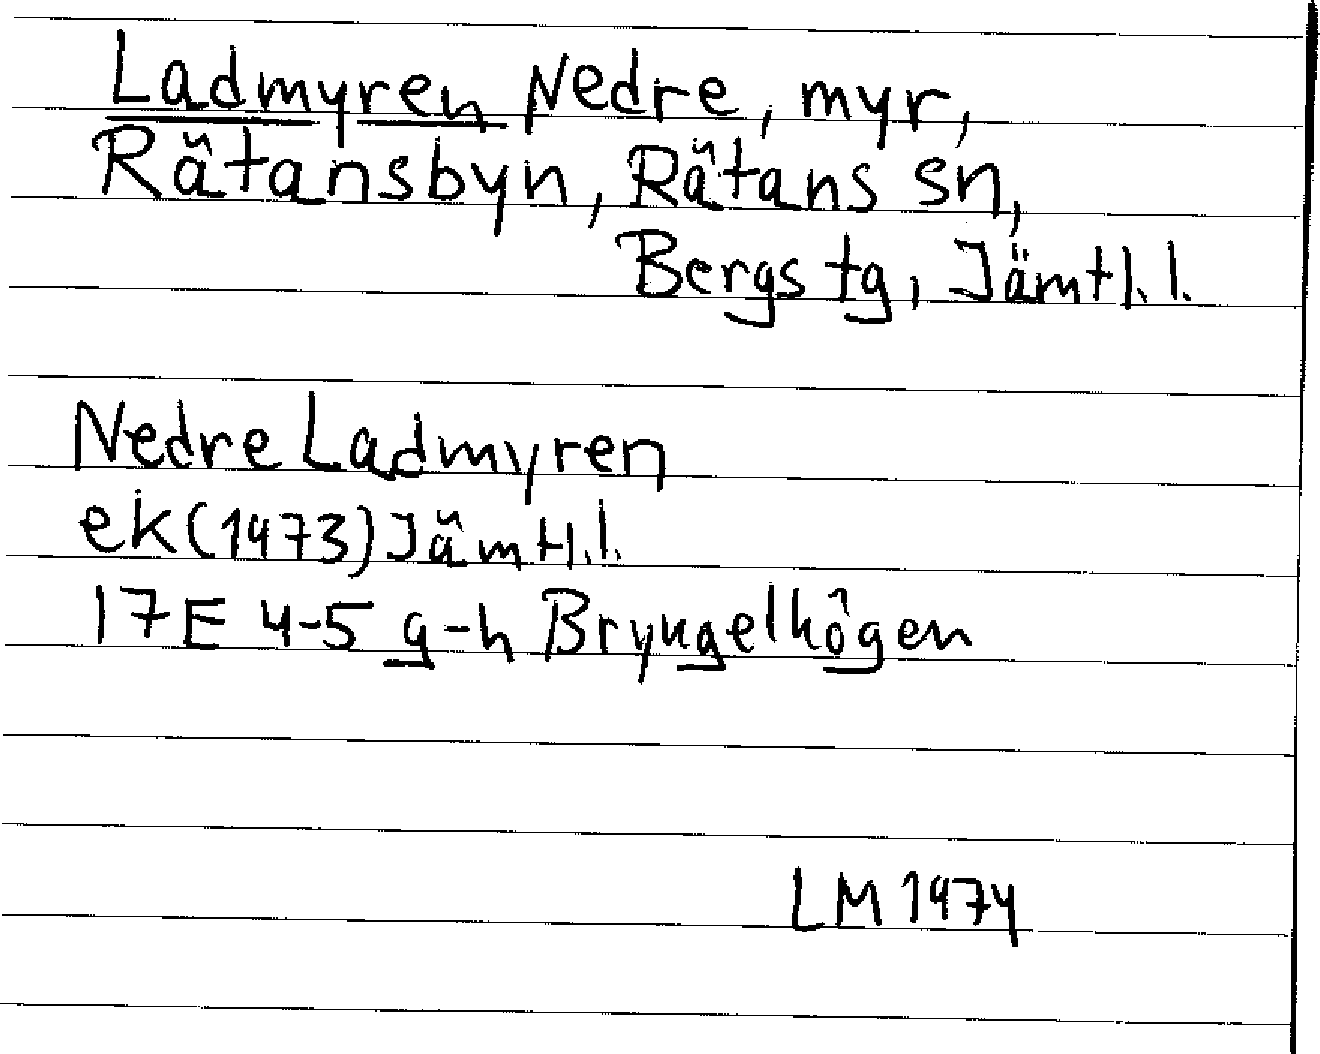 Ladmyren Nedre, myr,
Rätansbyn, Rätans sn,
Bergs tg, Jämtl. l.
Nedre Ladmyren
ek (1973) Jämtl. l.
17E 4-5 g-h Bryngelhögen
LM 1974